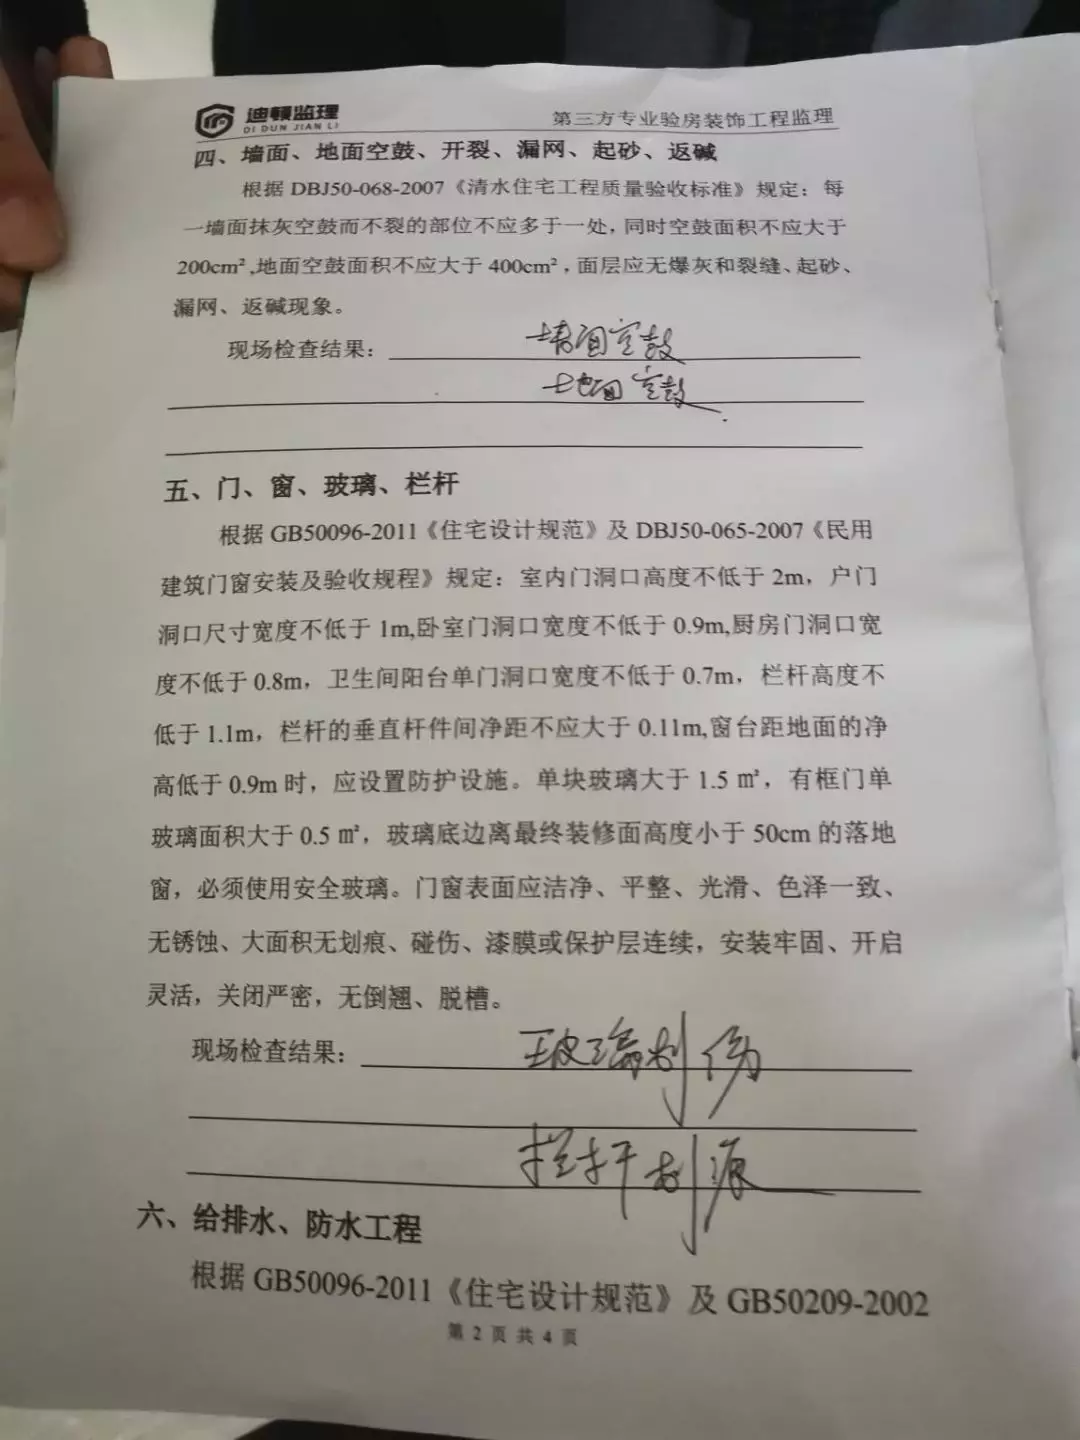 迪顿监理
DI DUN JIAN LI
第三方专业验房装饰工程监理
四、墙面、地面空鼓、开裂、漏网、起砂、返碱
根据 DBJ50-068-2007《清水住宅工程质量验收标准》规定：每
一墙面抹灰空鼓而不裂的部位不应多于一处，同时空鼓面积不应大于
200cm²,地面空鼓面积不应大于 400cm²，面层应无爆灰和裂缝、起砂、
漏网、返碱现象。
现场检查结果：墙面空鼓
地面空鼓.
五、门、窗、玻璃、栏杆
根据 GB50096-2011《住宅设计规范》及 DBJ50-065-2007《民用
建筑门窗安装及验收规程》规定：室内门洞口高度不低于 2m，户门
洞口尺寸宽度不低于 1m,卧室门洞口宽度不低于 0.9m,厨房门洞口宽
度不低于 0.8m，卫生间阳台单门洞口宽度不低于 0.7m，栏杆高度不
低于 1.1m，栏杆的垂直杆件间净距不应大于 0.11m,窗台距地面的净
高低于 0.9m 时，应设置防护设施。单块玻璃大于 1.5 ㎡，有框门单
玻璃面积大于 0.5 ㎡，玻璃底边离最终装修面高度小于 50cm 的落地
窗，必须使用安全玻璃。门窗表面应洁净、平整、光滑、色泽一致、
无锈蚀、大面积无划痕、碰伤、漆膜或保护层连续，安装牢固、开启
灵活，关闭严密，无倒翘、脱槽。
现场检查结果：玻璃划伤
栏杆划痕
六、给排水、防水工程
根据 GB50096-2011《住宅设计规范》及 GB50209-2002
第 2 页 共 4 页